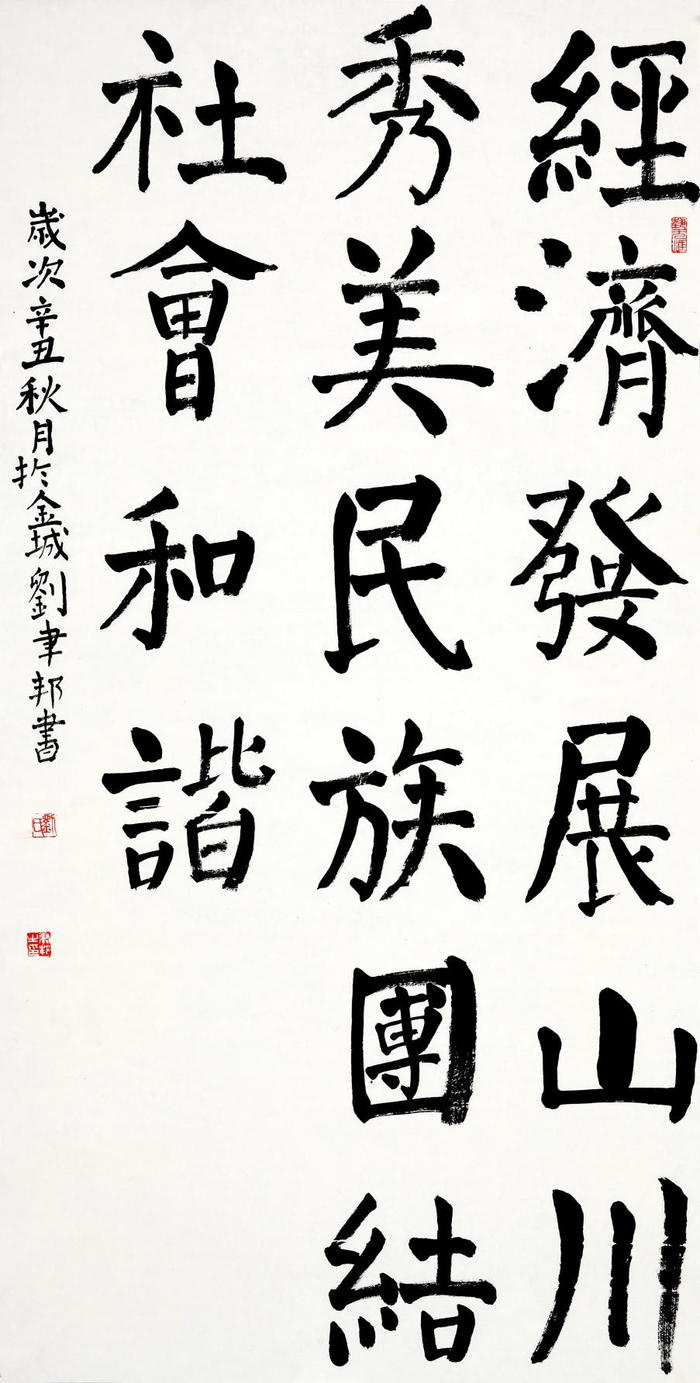 經濟發展山川
秀美民族團結
社會和諧
歲次辛丑秋月於金城劉聿邦書